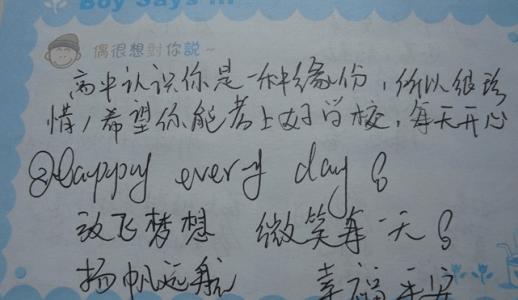 Boy Says In
偶很想對你說~
高中认识你是一种缘份，所以很珍
惜，希望你能考上好学校，每天开心
Happy every day
放飞梦想 微笑每一天
扬帆远航 幸福平安